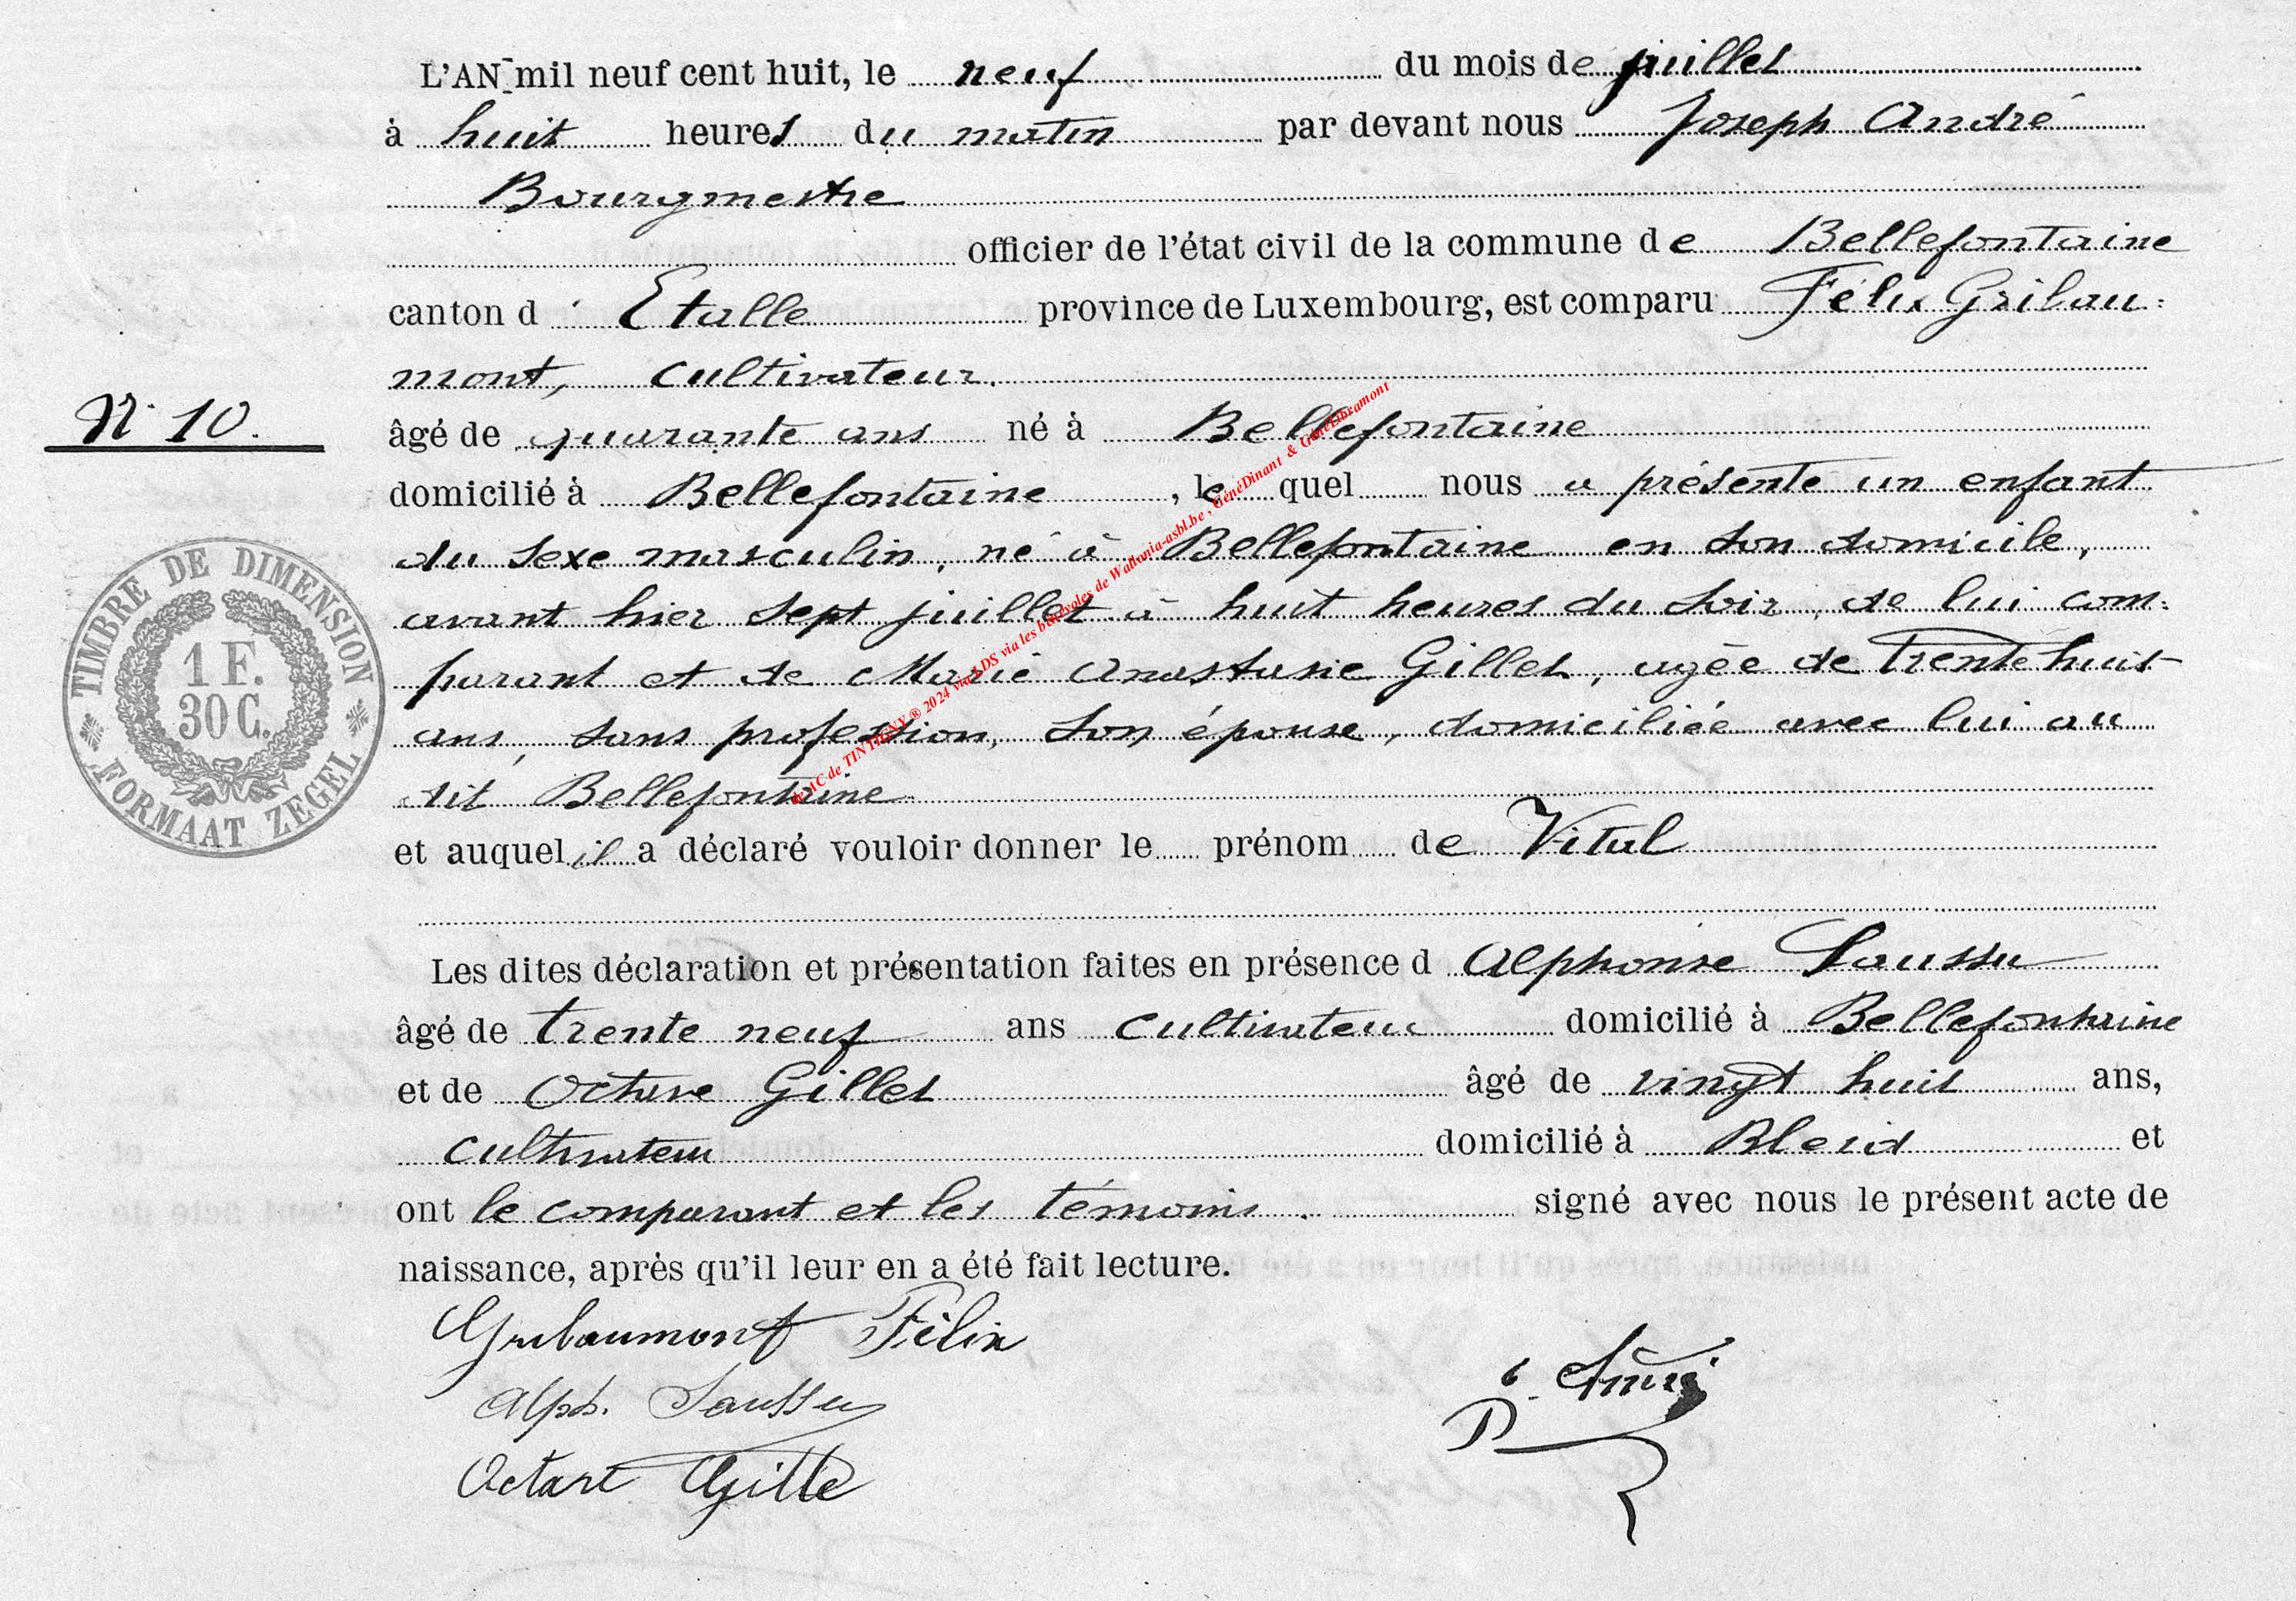 L'AN mil neuf cent huit, le neuf du mois de juillet
à huit heures du matin par devant nous Joseph André
Bourgmestre
officier de l'état civil de la commune de Bellefontaine
canton d'Etalle province de Luxembourg, est comparu Félix Gribau=
mont, cultivateur.
âgé de quarante ans né à Bellefontaine
N° 10.
domicilié à Bellefontaine, lequel nous a présenté un enfant
du sexe masculin, né à Bellefontaine en son domicile,
avant hier sept juillet à huit heures du soir, de lui com=
parant et de Marie Anastasie Gillet, agée de trente huit
ans, sans profession, son épouse, domiciliée avec lui au
dit Bellefontaine
et auquel il a déclaré vouloir donner le prénom de Vital
TIMBRE DE DIMENSION
1 F.
30 C.
FORMAAT ZEGEL
de AC de TINTIGNY ® 2024 via LDS via les bénévoles de Wallonia-asbl.be, GénéDinant & GénéLibramont
Les dites déclaration et présentation faites en présence d Alphonse Saussu
âgé de trente neuf ans cultivateur domicilié à Bellefontaine
et de Octave Gillet âgé de vingt huit ans,
cultivateur domicilié à Bleid et
ont le comparant et les témoins. signé avec nous le présent acte de
naissance, après qu'il leur en a été fait lecture.
Gribaumont Félix
Alph. Saussu
Gille